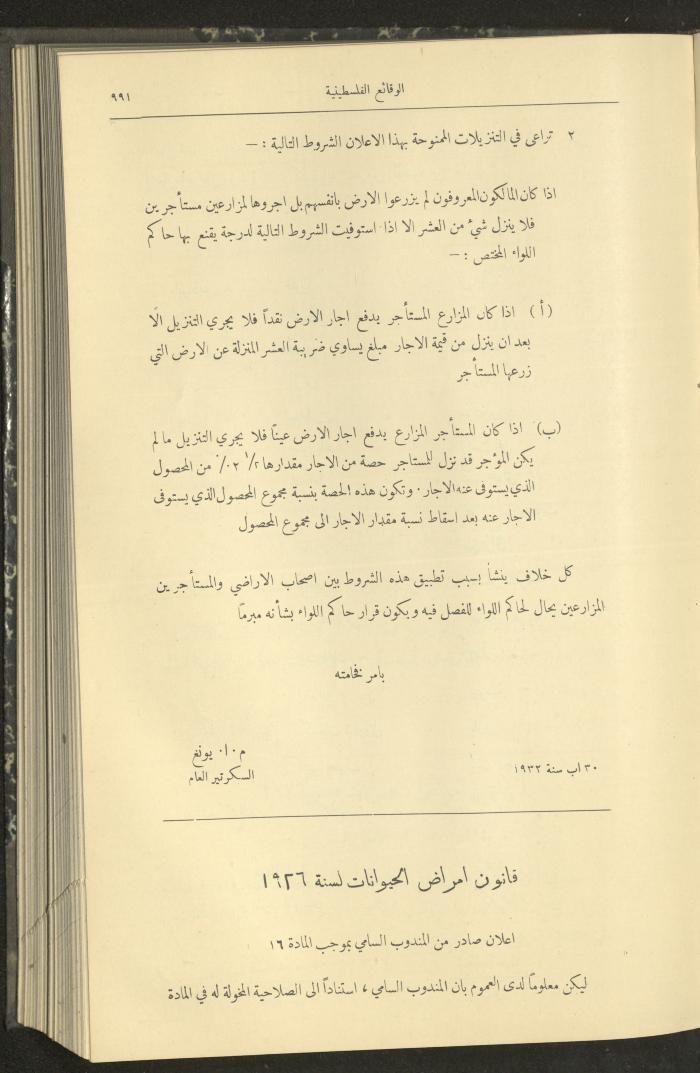 الوقائع الفلسطينية
٩٩١
٢ تراعى في التنزيلات الممنوحة بهذا الاعلان الشروط التالية : —
اذا كان المالكون المعروفون لم يزرعوا الارض بانفسهم بل اجروها لمزارعين مستأجرين
فلا ينزل شيء من العشر الا اذا استوفيت الشروط التالية لدرجة يقنع بها حاكم
اللواء المختص : —
(أ) اذا كان المزارع المستأجر يدفع اجار الارض نقداً فلا يجري التنزيل الا
بعد ان ينزل من قيمة الاجار مبلغ يساوي ضريبة العشر المنزلة عن الارض التي
زرعها المستأجر
(ب) اذا كان المستأجر المزارع يدفع اجار الارض عيناً فلا يجري التنزيل ما لم
يكن المؤجر قد نزل للمستاجر حصة من الاجار مقدارها من المحصول
الذي يستوفى عنه الاجار. وتكون هذه الحصة بنسبة مجموع المحصول الذي يستوفى
الاجار عنه بعد اسقاط نسبة مقدار الاجار الى مجموع المحصول
كل خلاف ينشأ بسبب تطبيق هذه الشروط بين اصحاب الاراضي والمستأجرين
المزارعين يحال لحاكم اللواء للفصل فيه ويكون قرار حاكم اللواء بشأنه مبرماً
بامر فخامته
م.ا. يونغ
٣٠ اب سنة ١٩٣٢
السكرتير العام
قانون امراض الحيوانات لسنة ١٩٢٦
اعلان صادر من المندوب السامي بموجب المادة ١٦
ليكن معلوماً لدى العموم بان المندوب السامي ، استناداً الى الصلاحية المخولة له في المادة